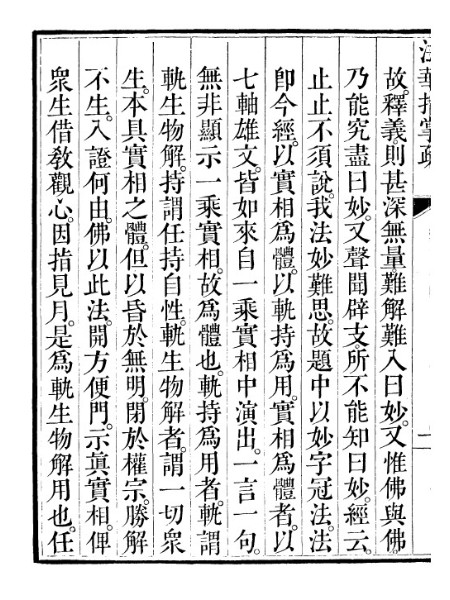 法華指掌疏
故。釋義。則甚深無量難解難入曰妙。又惟佛與佛。
乃能究盡曰妙。又聲聞辟支。所不能知曰妙。經云。
止止不須說。我法妙難思。故題中以妙字冠法。法
卽今經。以實相爲體。以軌持爲用。實相爲體者。以
七軸雄文。皆如來自一乘實相中演出。一言一句。
無非顯示一乘實相。故爲體也。軌持爲用者。軌謂
軌生物解。持謂任持自性。軌生物解者。謂一切衆
生。本具實相之體。但以昏於無明。閉於權宗。勝解
不生。入證何由。佛以此法。開方便門。示眞實相。俾
衆生借敎觀心。因指見月。是爲軌生物解用也。任